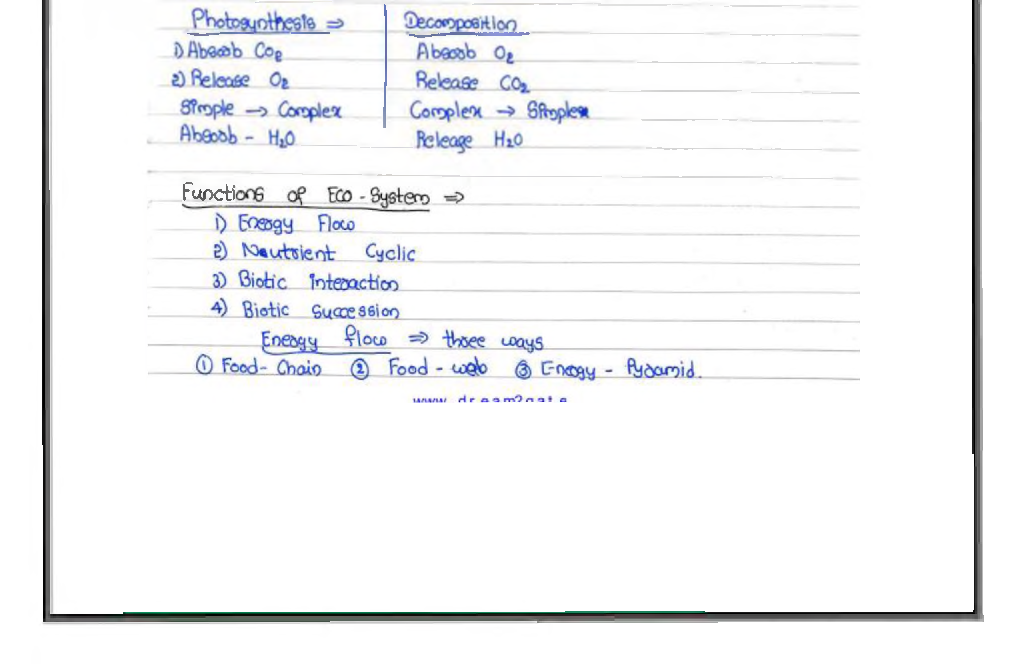 Photosynthesis ⇒ Decomposition
1) Absorb CO2 Absorb O2
2) Release O2 Release CO2
Simple → Complex Complex → Simplex
Absorb - H2O Release H2O
Functions of Eco-System ⇒
1) Energy Flow
2) Neutrient Cyclic
3) Biotic Interaction
4) Biotic Succession
Energy flow ⇒ three ways
① Food-Chain ② Food-web ③ Energy - Pyramid.